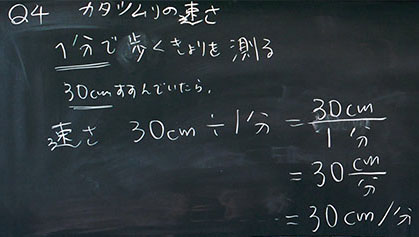 Q4 カタツムリの速さ
1分で歩くきょりを測る
30cmすすんでいたら、
速さ 30cm÷1分 = 30cm/1分
= 30 cm/分
= 30cm/分